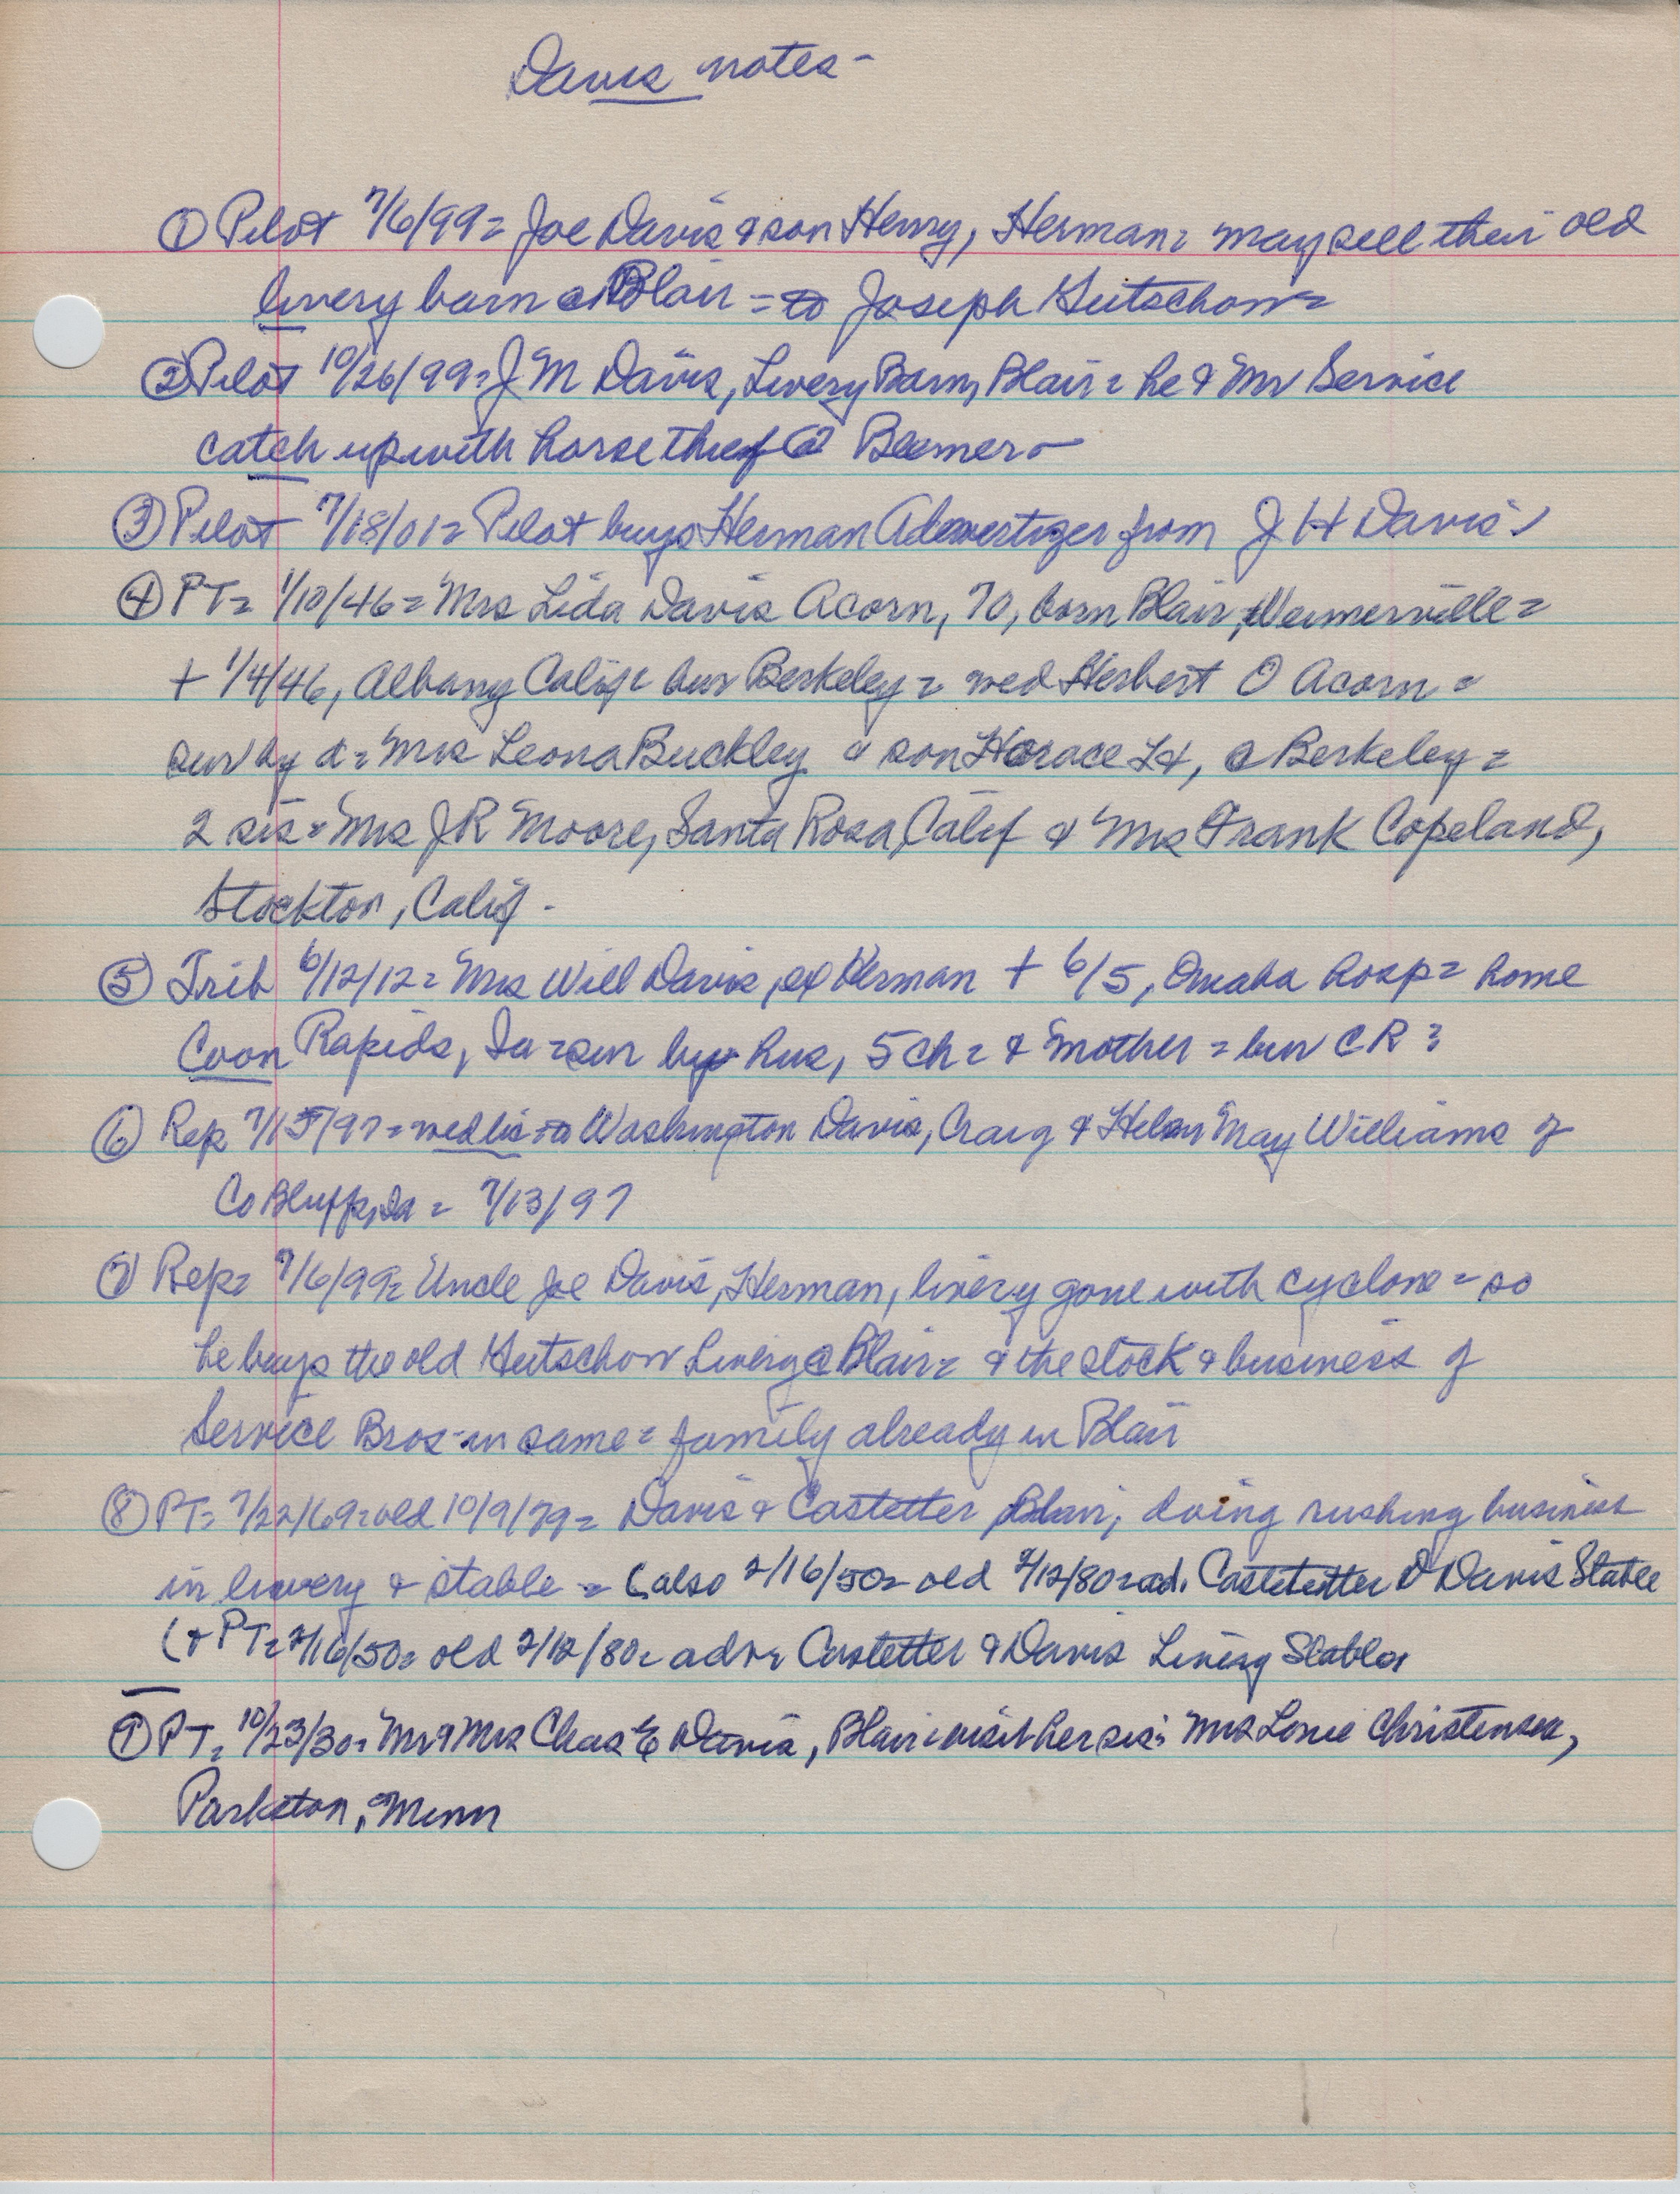 Davis notes -
① Pilot 7/6/99 = Joe Davis & son Henry, Herman = may sell their old
livery barn @ Blair = to Joseph Gutschow =
② Pilot 10/26/99 = J M Davis, Livery Barn, Blair = he & Mr Service
catch up with horse thief @ Beemer -
③ Pilot 7/18/01 = Pilot buys Herman Advertizer from J H Davis
④ PT = 1/10/46 = Mrs Lida Davis Acorn, 70, born Blair, =
+ 1/4/46, Albany Calif = bur Berkeley = wed Herbert O Acorn =
sur by d = Mrs Leona Buckley & son Horace , @ Berkeley =
2 sis = Mrs J R Moore, Santa Rosa, Calif & Mrs Frank Copeland,
Stockton, Calif -
⑤ Trib 6/12/12 = Mrs Will Davis, ex Herman + 6/5, Omaha hosp = home
Coon Rapids, Ia = sur by hus, 5 ch = & mother = bur C R ?
⑥ Rep 7/15/97 = wed lis to Washington Davis, Craig & Helen May Williams of
Co Bluffs, Ia = 7/13/97
⑦ Rep = 7/6/99 = Uncle Joe Davis, Herman, livery gone with cyclone = so
he buys the old Gutschow Livery @ Blair = & the stock & business of
Service Bros - in same = family already in Blair
⑧ PT = 7/22/69 = old 10/9/79 = Davis & Castetter Blair, doing rushing business
in livery & stable = (also 2/16/50 = old 2/12/80 = ad. Castetter & Davis Stable
(& PT = 2/16/50 = old 2/12/80 = adv = Castetter & Davis Livery Stables
⑨ PT = 10/23/30 = Mr & Mrs Chas E Davis, Blair = visit her sis = Mrs Christensen,
Parkston, Minn